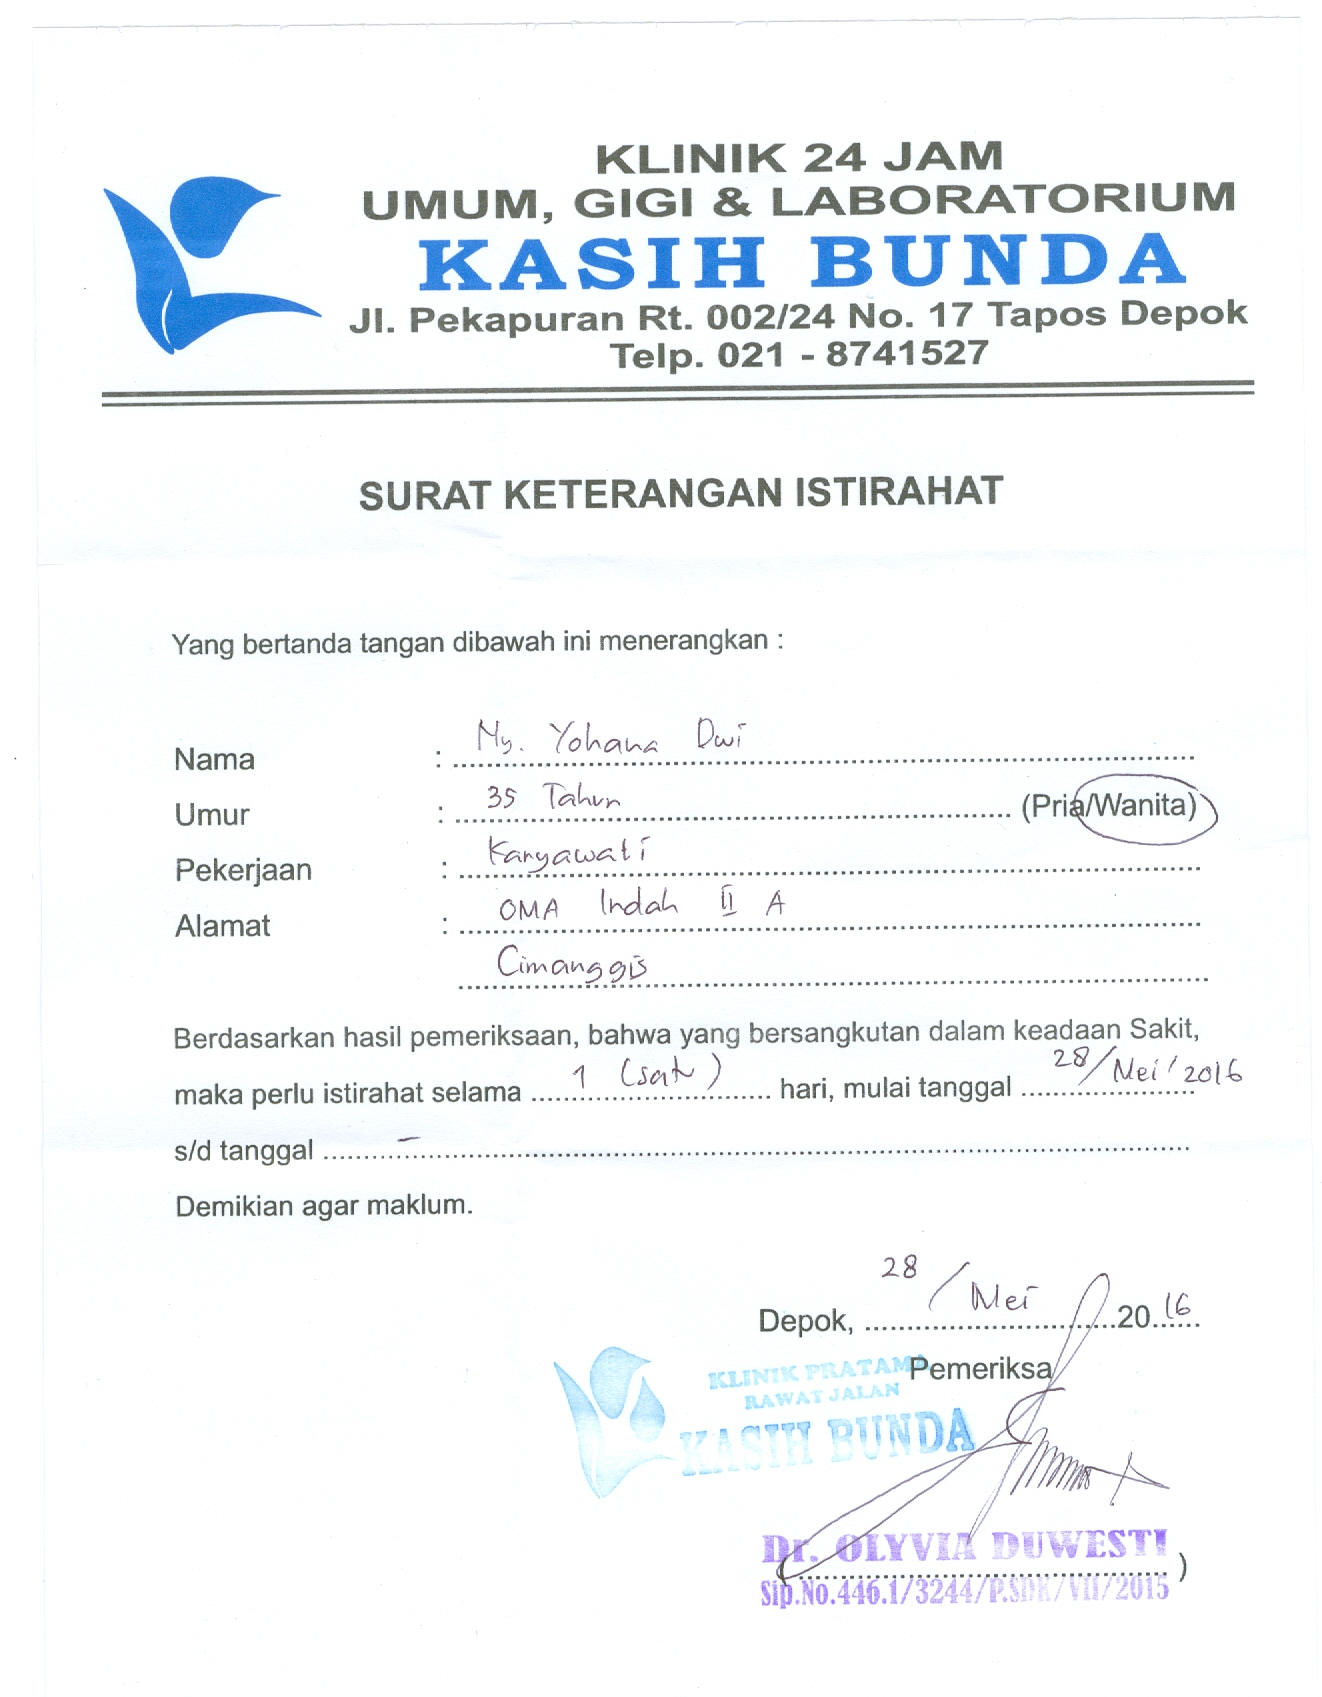 KLINIK 24 JAM
UMUM, GIGI & LABORATORIUM
KASIH BUNDA
Jl. Pekapuran Rt. 002/24 No. 17 Tapos Depok
Telp. 021 - 8741527
SURAT KETERANGAN ISTIRAHAT
Yang bertanda tangan dibawah ini menerangkan :
Nama : Ny. Yohana Dwi
Umur : 35 Tahun (Pria/Wanita)
Pekerjaan : Karyawati
Alamat : OMA Indah II A
Cimanggis
Berdasarkan hasil pemeriksaan, bahwa yang bersangkutan dalam keadaan Sakit,
maka perlu istirahat selama 1 (satu) hari, mulai tanggal 28/Mei/2016
s/d tanggal –
Demikian agar maklum.
Depok, 28/Mei 2016
Pemeriksa
KLINIK PRATAMA
RAWAT JALAN
KASIH BUNDA
Dr. OLYVIA DUWESTI
( )
Sip.No.446.1/3244/P.SDK/VII/2015